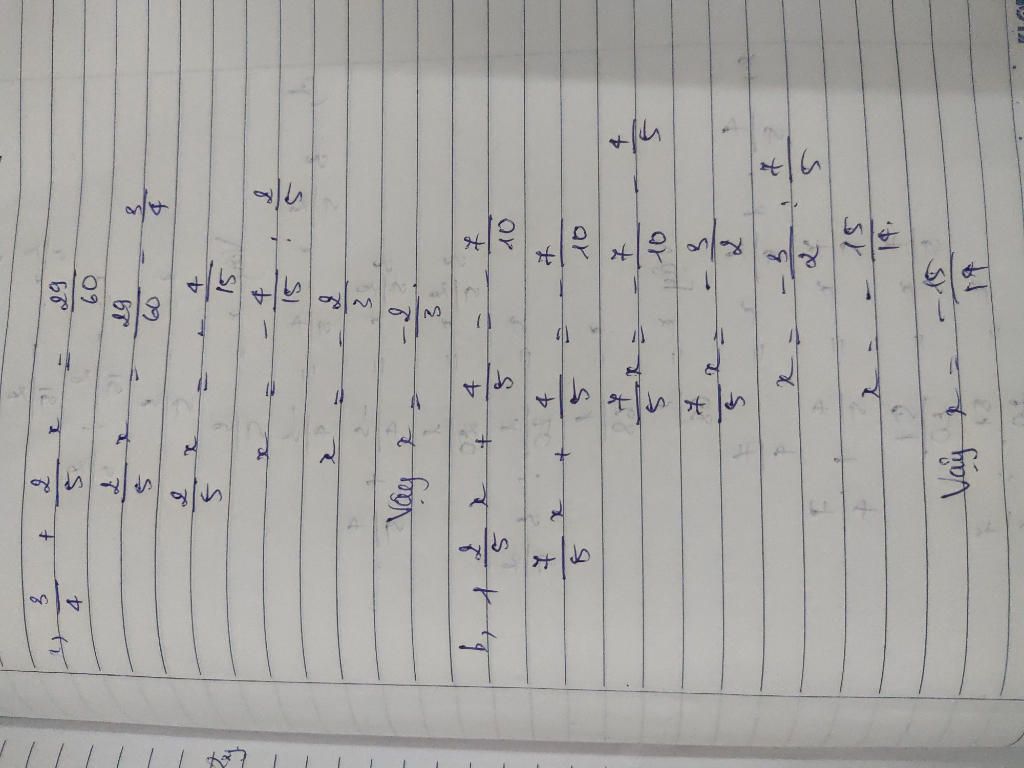 a, 3/4 + 2/5 x = 29/60
2/5 x = 29/60 - 3/4
2/5 x = - 4/15
x = - 4/15 : 2/5
x = - 2/3
Vậy x = - 2/3.
b, 1 2/5 x + 4/5 = - 7/10
7/5 x + 4/5 = - 7/10
7/5 x = - 7/10 - 4/5
7/5 x = - 3/2
x = - 3/2 : 7/5
x = - 15/14.
Vậy x = - 15/14